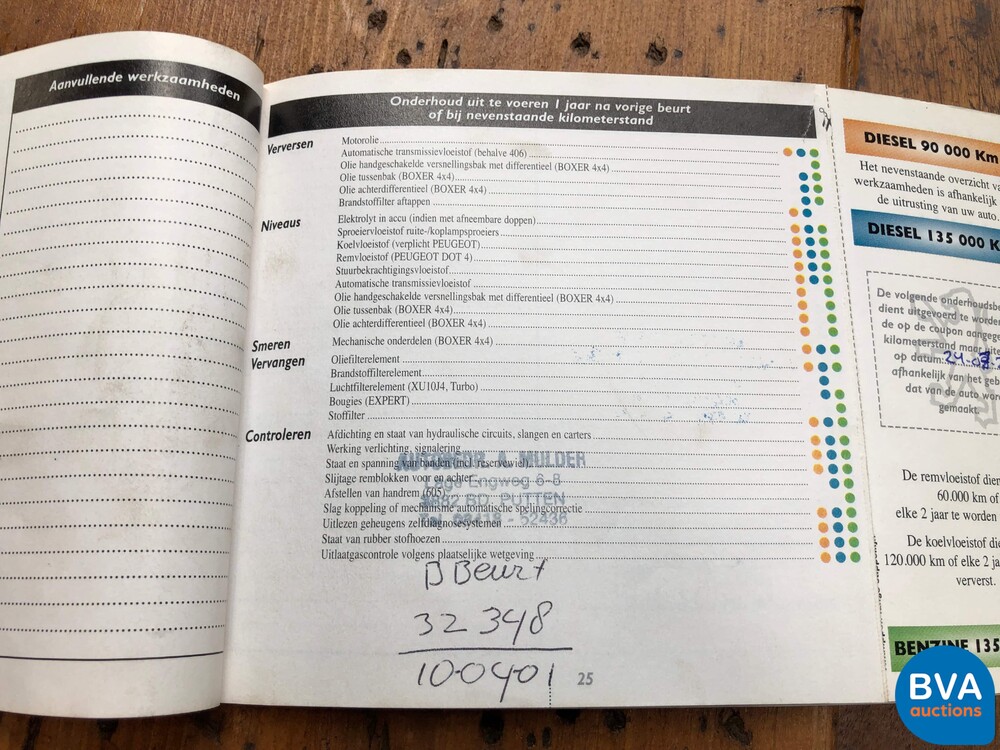 Aanvullende werkzaamheden
Onderhoud uit te voeren 1 jaar na vorige beurt
of bij nevenstaande kilometerstand
Verversen
Motorolie
Automatische transmissievloeistof (behalve 406)
Olie handgeschakelde versnellingsbak met differentieel (BOXER 4x4)
Olie tussenbak (BOXER 4x4)
Olie achterdifferentieel (BOXER 4x4)
Brandstoffilter aftappen
Niveaus
Elektrolyt in accu (indien met afneembare doppen)
Sproeiervloeistof ruite-/koplampsproeiers
Koelvloeistof (verplicht PEUGEOT)
Remvloeistof (PEUGEOT DOT 4)
Stuurbekrachtigingsvloeistof
Automatische transmissievloeistof
Olie handgeschakelde versnellingsbak met differentieel (BOXER 4x4)
Olie tussenbak (BOXER 4x4)
Olie achterdifferentieel (BOXER 4x4)
Smeren
Mechanische onderdelen (BOXER 4x4)
Vervangen
Oliefilterelement
Brandstoffilterelement
Luchtfilterelement (XU10J4, Turbo)
Bougies (EXPERT)
Stoffilter
Controleren
Afdichting en staat van hydraulische circuits, slangen en carters
Werking verlichting, signalering
Staat en spanning van banden (incl. reservewiel)
Slijtage remblokken voor en achter
Afstellen van handrem (605)
Slag koppeling of mechanisme automatische spelingcorrectie
Uitlezen geheugens zelfdiagnosesystemen
Staat van rubber stofhoezen
Uitlaatgascontrole volgens plaatselijke wetgeving
AUTOBEDR. A. MULDER
Lage Engweg 6-8
3882 BD. PUTTEN
Tel. 03418 - 52436
B Beurt
32 348
100401
25
DIESEL 90 000 Km
Het nevenstaande overzicht va
werkzaamheden is afhankelijk
de uitrusting van uw auto.
DIESEL 135 000 K
De volgende onderhoudsbe
dient uitgevoerd te worden
de op de coupon aangege
kilometerstand maar uite
op datum:
afhankelijk van het geb
dat van de auto word
gemaakt.
De remvloeistof dien
60.000 km of
elke 2 jaar te worden
De koelvloeistof die
120.000 km of elke 2 ja
ververst.
BENZINE 135
BVA
auctions